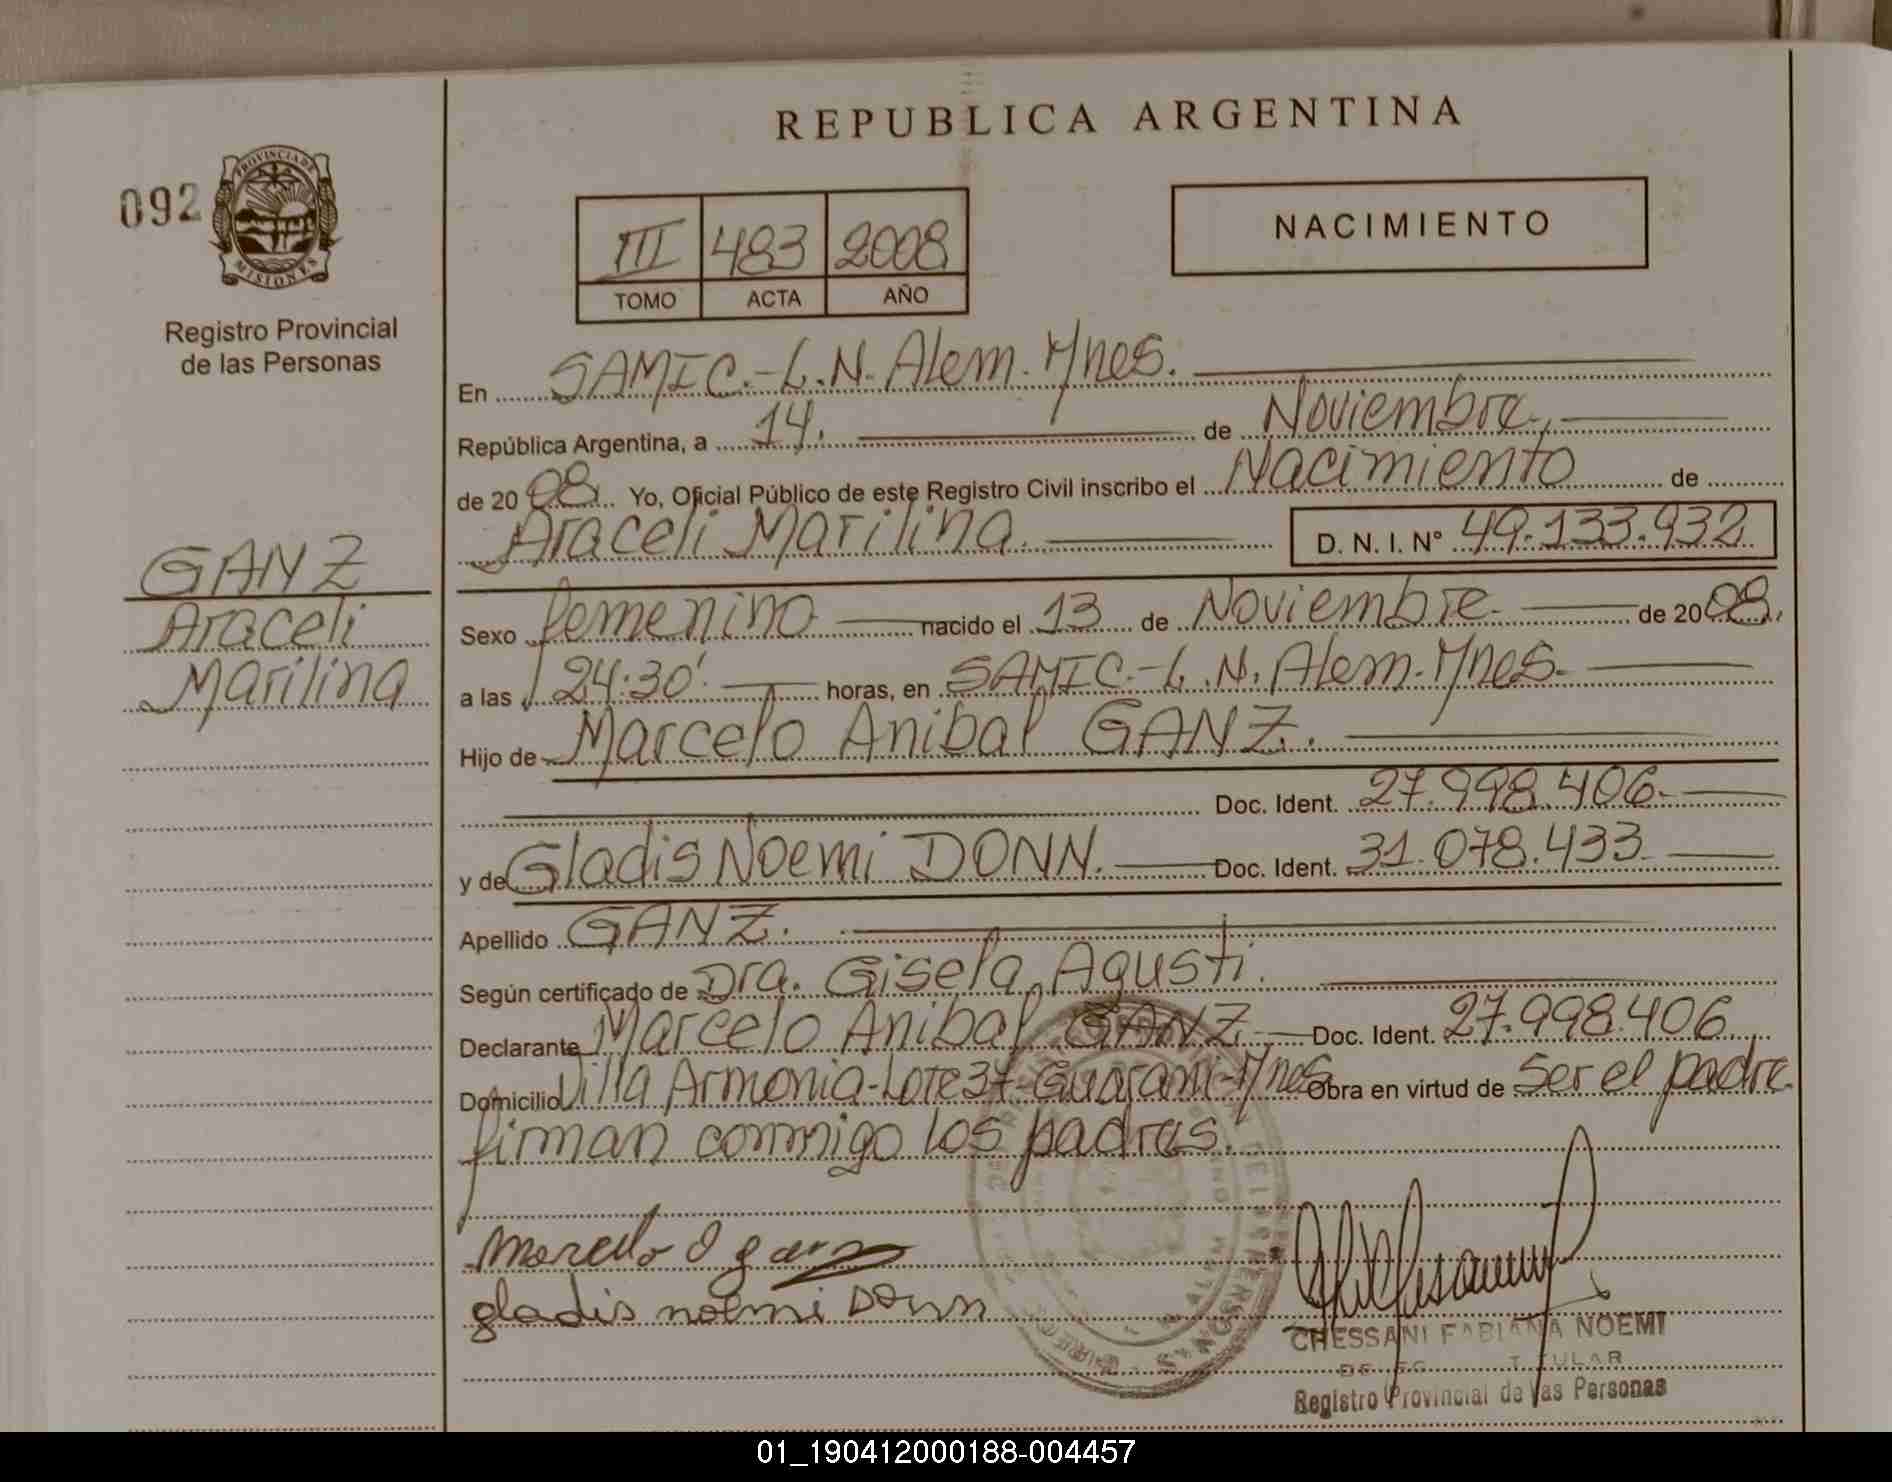 REPUBLICA ARGENTINA
092
PROVINCIA DE
MISIONES
Registro Provincial
de las Personas
III 483 2008
TOMO ACTA AÑO
NACIMIENTO
En SAMIC.-L.N. Alem. Mnes.
República Argentina, a 14. de Noviembre,
de 2008. Yo, Oficial Público de este Registro Civil inscribo el Nacimiento de
Araceli Marilina. D. N. I. N° 49.133.932
GANZ
Araceli
Marilina
Sexo femenino nacido el 13 de Noviembre. de 2008.
a las 24:30' horas, en SAMIC.-L.N. Alem. Mnes.
Hijo de Marcelo Anibal GANZ.
Doc. Ident. 27.998.406
y de Gladis Noemi DONN. Doc. Ident. 31.078.433
Apellido GANZ.
Según certificado de Dra. Gisela Agusti.
Declarante Marcelo Anibal GANZ Doc. Ident. 27.998.406
Domicilio Villa Armonia-Lote 37-Guarani-Mnes Obra en virtud de ser el padre
firman conmigo los padres.
Marcelo A ganz
gladis noemi Donn
CHESSANI FABIANA NOEMI
TITULAR
Registro Provincial de las Personas
01_190412000188-004457